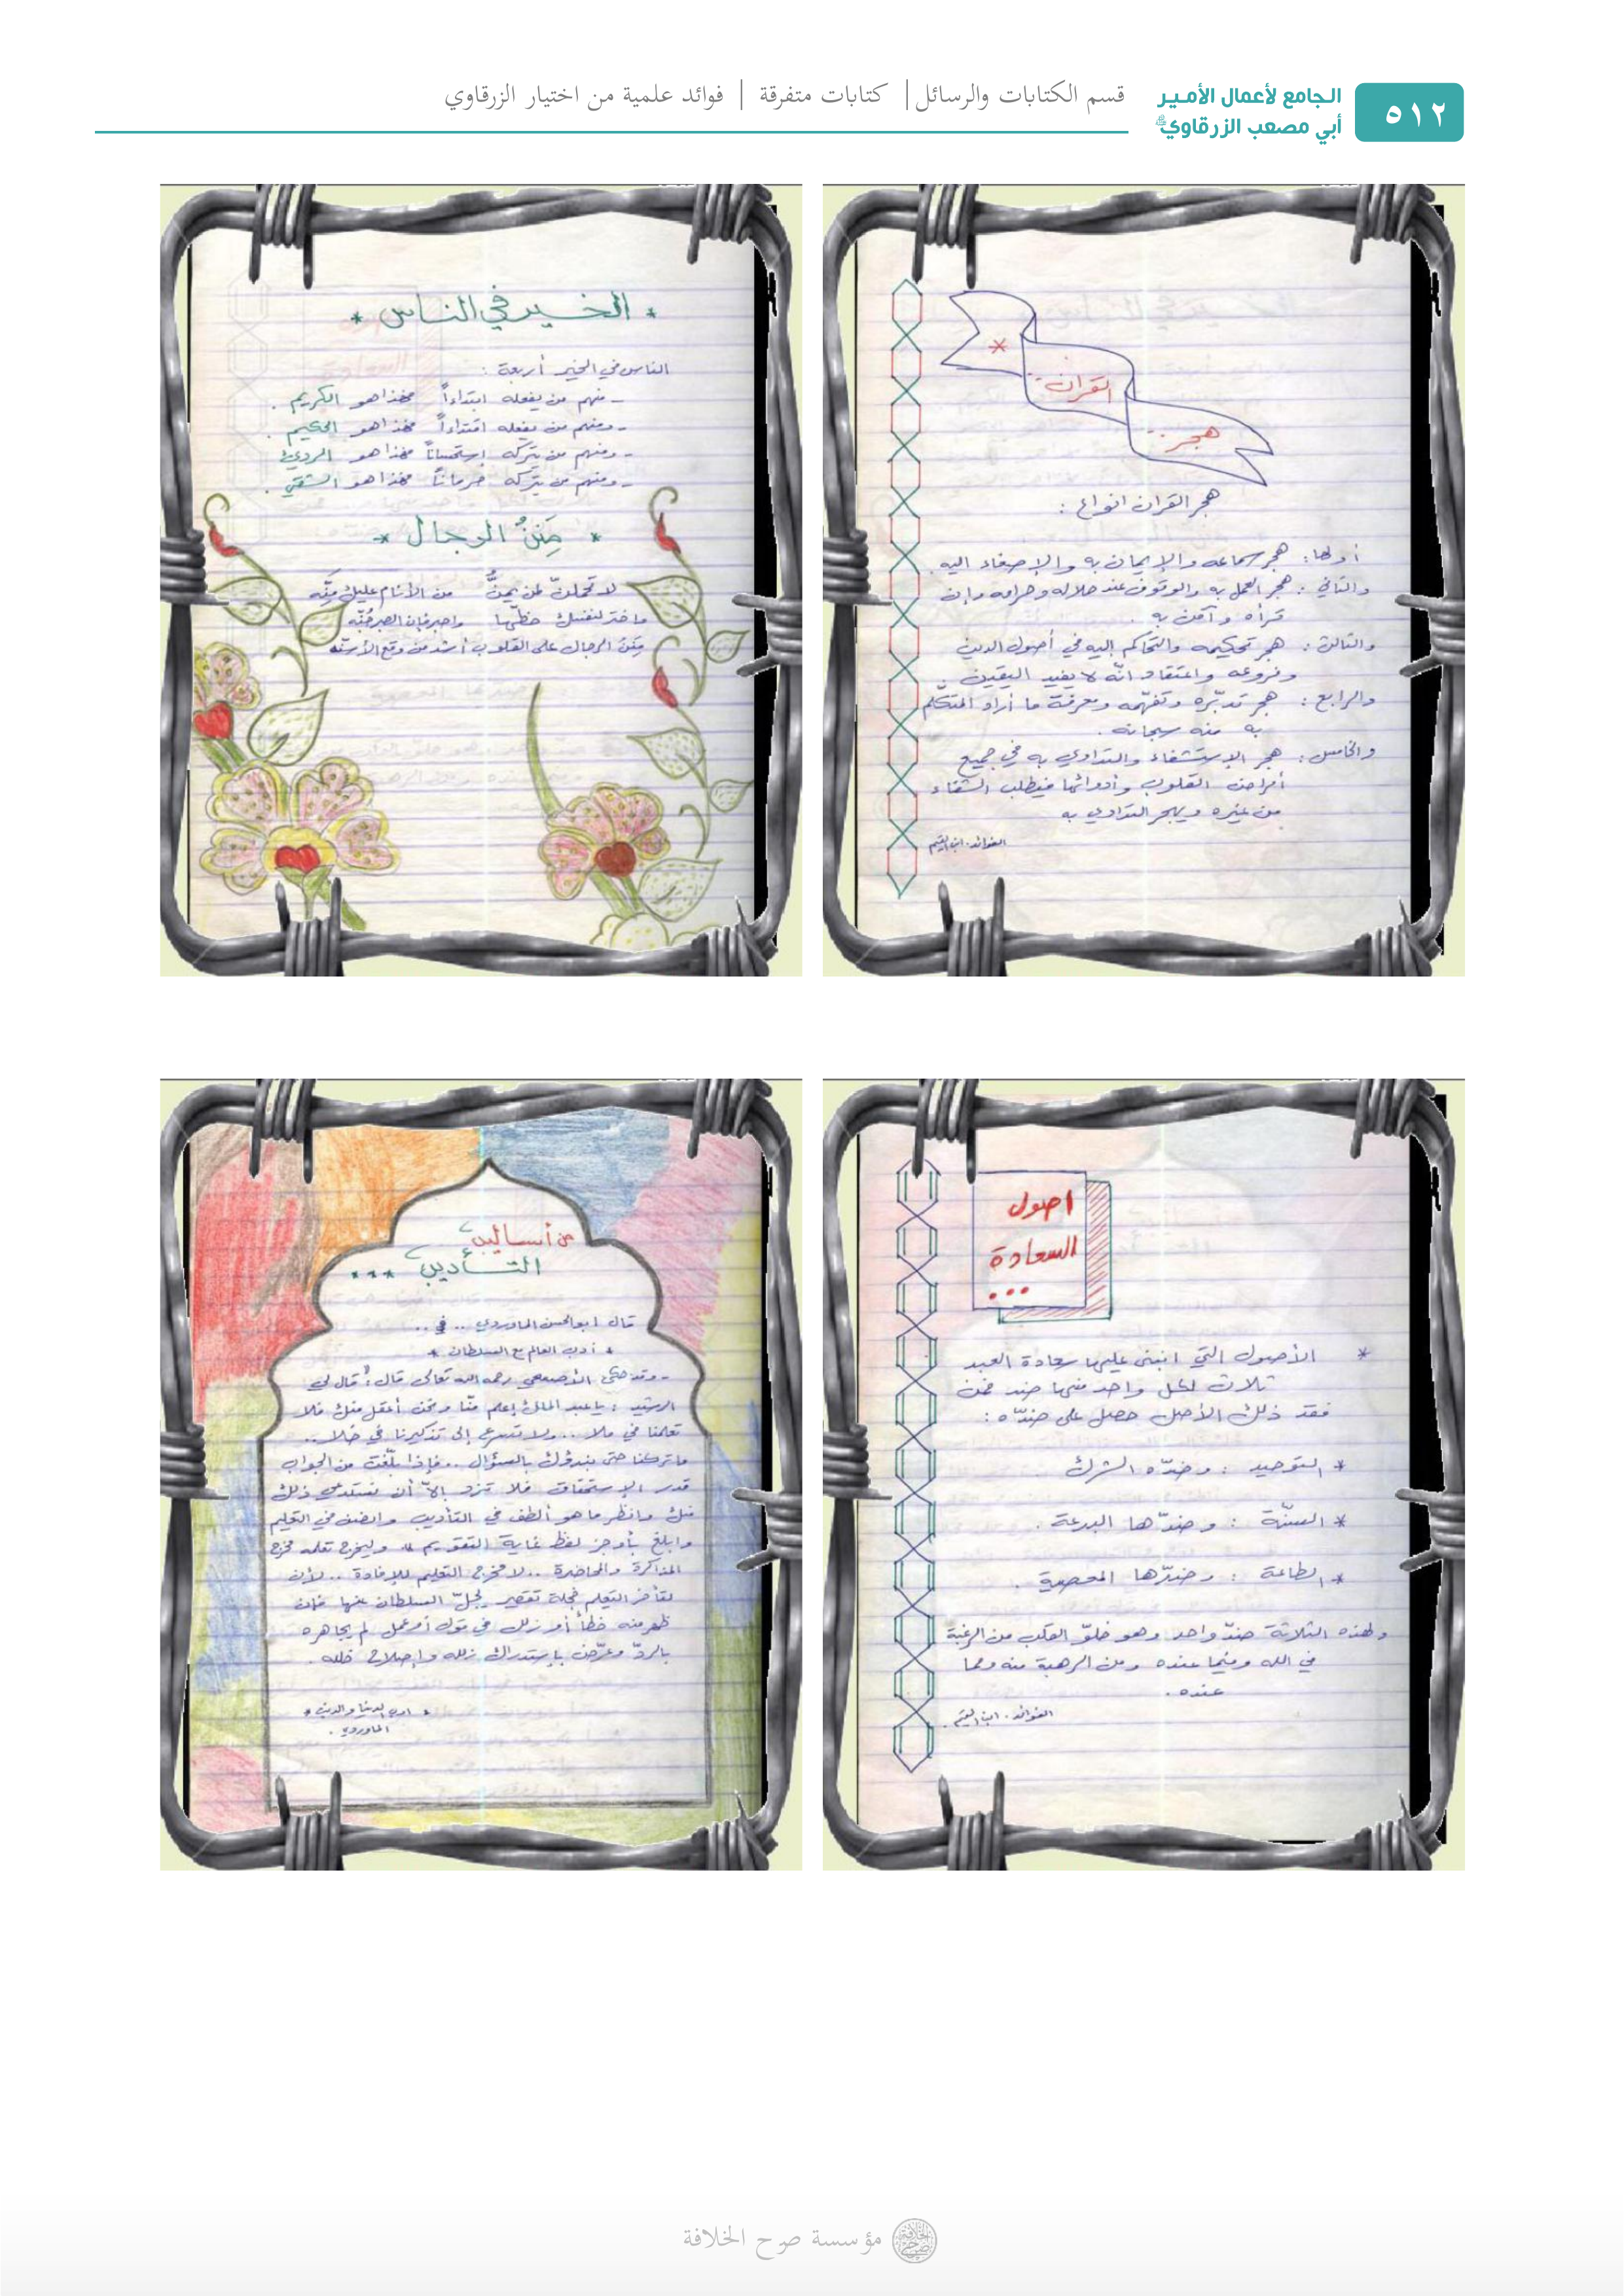 ٥١٢
الجامع لأعمال الأمير
أبي مصعب الزرقاوي
قسم الكتابات والرسائل | كتابات متفرقة | فوائد علمية من اختيار الزرقاوي
هجر ..
القرآن ..
هجر القرآن انواع :
أولها : هجر سماعه والإيمان به والإصغاء إليه .
والثاني : هجر العمل به والوقوف عند حلاله وحرامه وإن
قرأه وآمن به .
والثالث : هجر تحكيمه والتحاكم إليه في أصول الدين
وفروعه واعتقاد أنّه لا يفيد اليقين .
والرابع : هجر تدبّره وتفهّمه ومعرفة ما أراد المتكلّم
به منه سبحانه .
والخامس : هجر الإستشفاء والتداوي به في جميع
أمراض القلوب وأدوائها فيطلب الشفاء
من غيره ويهجر التداوي به
الفوائد . ابن القيم
* الخير في الناس *
الناس في الخير أربعة :
- منهم من يفعله ابتداءاً فهذا هو الكريم .
- ومنهم من يفعله اقتداءاً فهذا هو الحكيم .
- ومنهم من يتركه إستحساناً فهذا هو الرديئ
- ومنهم من يتركه حرماناً فهذا هو الشقي .
* مِنَنُ الرجال *
لا تحملنّ لمن يمنّ من الأنام عليك مِنّه
واختر لنفسك حظّها واصبر فإن الصبر جُنّه
مِننُ الرجال على القلوب أشد من وقع الأسنّه
اصول
السعادة
...
* الأصول التي انبنى عليها سعادة العبد
ثلاث لكل واحد منها ضد فمن
فقد ذلك الأصل حصل على ضدّه :
* التوحيد : وضدّه الشرك
* السنّة : وضدّها البدعة .
* الطاعة : وضدّها المعصية .
ولهذه الثلاثة ضدّ واحد وهو خلوّ القلب من الرغبة
في الله وفيما عنده ومن الرهبة منه ومما
عنده .
الفوائد . ابن القيم .
من أساليب
التأديب ...
قال ابو الحسن الماوردي .. في ..
* أدب العالم مع السلطان *
- وقد حكى الأصمعي رحمه الله تعالى قال : قال لي
الرشيد : يا عبد الملك إعلم منّا ونحن أعقل منك فلا
تعلمنا في ملا .. ولا تسرع إلى تذكيرنا في خلا ..
واتركنا حتى نبدؤك بالسؤال .. فإذا بلّغت من الجواب
قدر الإستحقاق فلا تزد إلاّ أن نستدعي ذلك
منك وانظر ما هو ألطف في التأديب وانصف في التعليم
وابلغ بأوجز لفظ غاية التقويم » وليخرج تعلمه مخرج
المذاكرة والمحاضرة .. لا مخرج التعليم للإفادة .. لأن
لتأخر التعلم خجلة تقصير يجلّ السلطان عنها فإن
ظهر منه خطأ أو زلل في قول أو عمل لم يجاهره
بالردّ وعرّض بإستدراك زلله وإصلاح خلله .
* ادب الدنيا والدين *
الماوردي .
مؤسسة صرح الخلافة